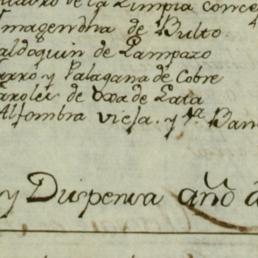 de la Limpia conce
Imagendna de Bulto
aldoquin de Lampazo
arro y Palagana de Cobre
aroles de Oxa de Lata
Alfombra vieja y
y Dispensa año